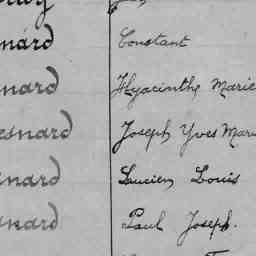 nard Constant
nard Hyacinthe Marie
esnard Joseph Yves Mari
nard Lucien Louis
snard Paul Joseph.